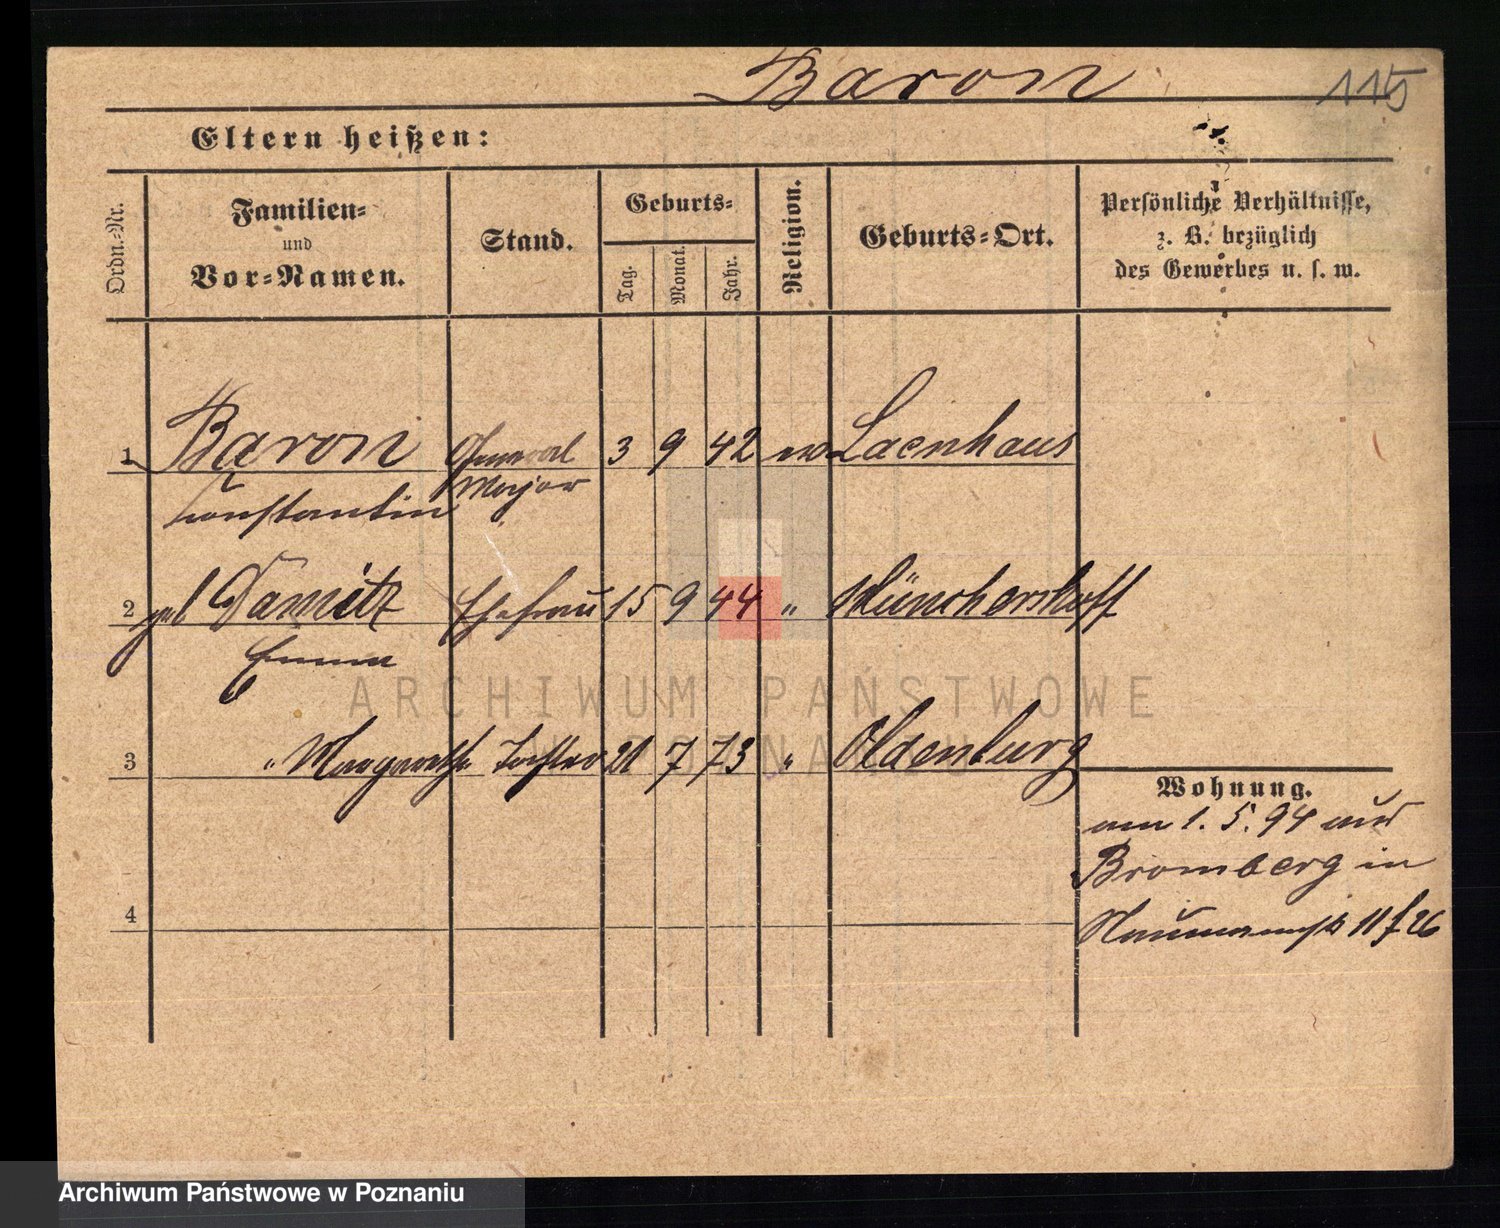 Baron 115
Eltern heißen:
Ordn.-Nr.
Familien-
und
Vor-Namen.
Stand.
Geburts-
Tag.
Monat.
Jahr.
Religion.
Geburts-Ort.
Persönliche Verhältnisse,
z. B. bezüglich
des Gewerbes u. s. w.
1 Baron General 3 9 42 ev Laenhaus
Constantin Major
2 geb Damitz Ehefrau 15 9 44 " Münchershoff
Emma
3 " Margarethe Tochter 21 7 73 " Oldenburg
Wohnung.
am 1. 5. 94 aus
Bromberg in
4
Naumannstr 11 f 26
ARCHIWUM PAŃSTWOWE
W POZNANIU
Archiwum Państwowe w Poznaniu